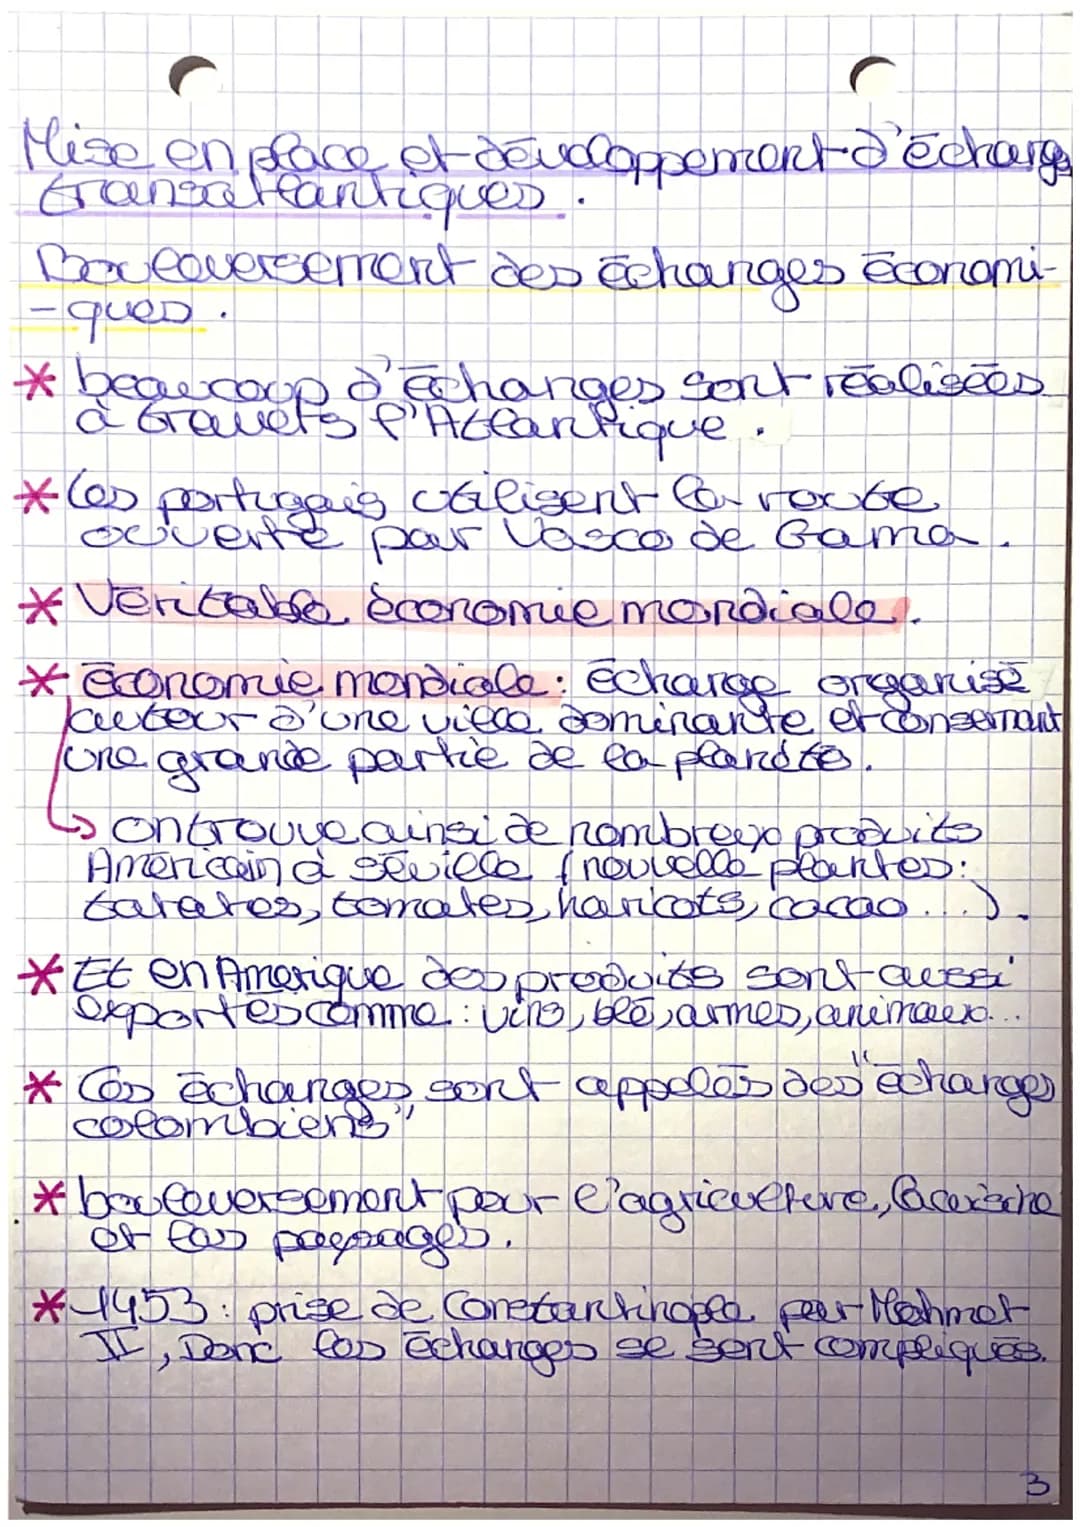 Mise en place et développement d'échange
transatlantiques.
Bouleversement des échanges économi-
-ques.
* beaucoup d'échanges sont réalisées
à travers l'Atlantique.
* Les portugais utilisent la route
ouverte par Vasco de Gama.
* Véritable économie mondiale.
* économie mondiale : échange organisé
autour d'une ville dominante et consernant
une grande partie de la planète.
↳ on trouve ainsi de nombreux produits
Américain à Séville (nouvelle plantes :
patates, tomates, haricots, cacao...).
* Et en Amérique des produits sont aussi
exportés comme : vins, blé, armes, animaux...
* Ces échanges sont appelés des "échanges
colombiens"
* bouleversement pour l'agriculture, la cuisine
et les paysages.
* 1453 : prise de Constantinople par Mehmet
II, Donc les échanges se sont compliqués.
3